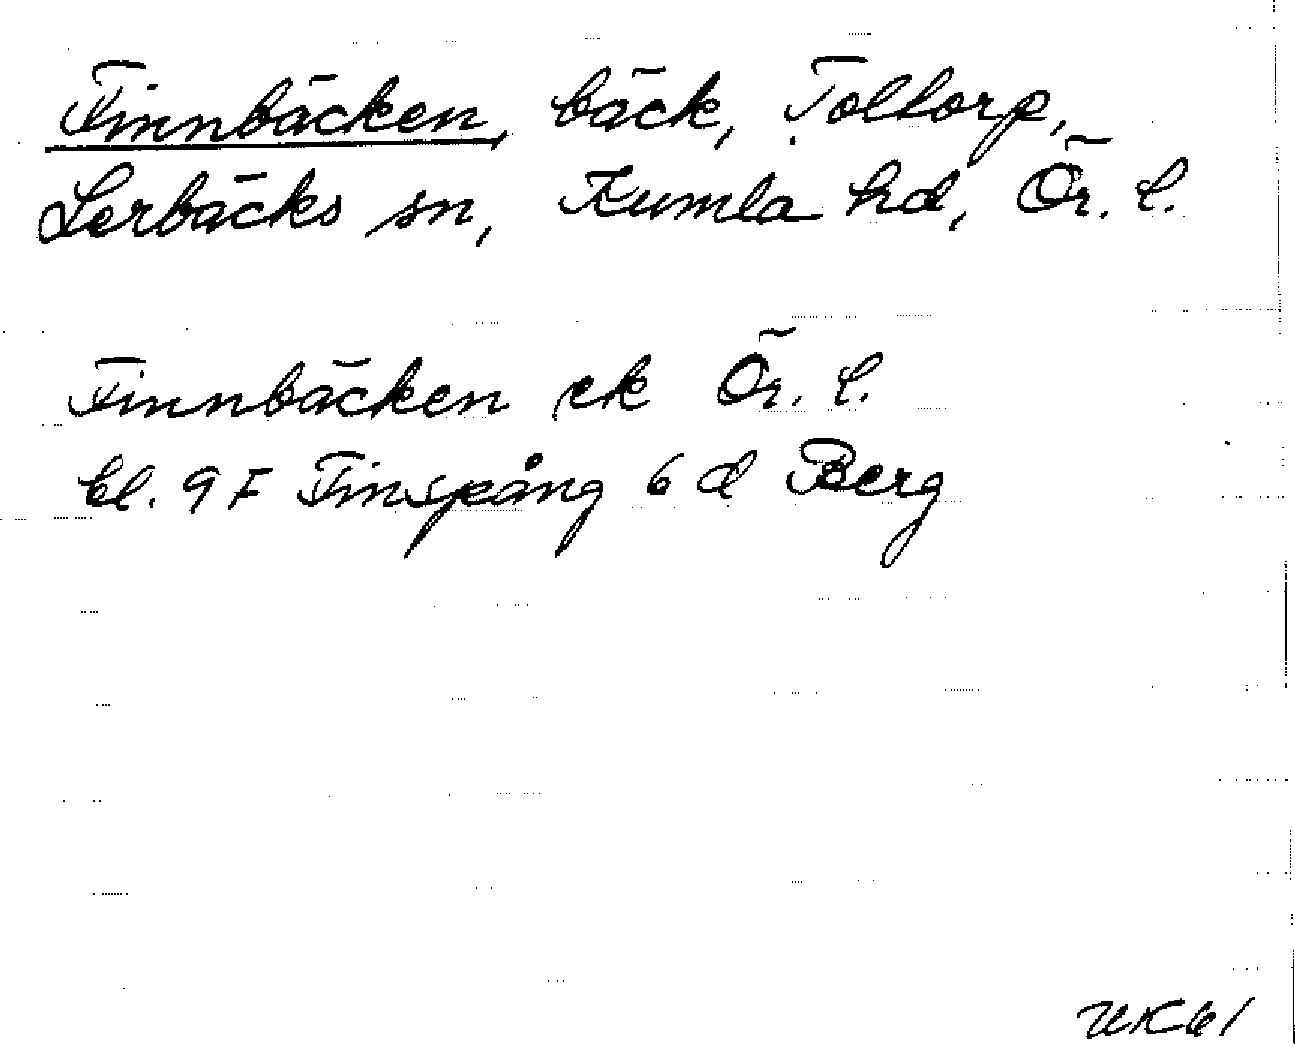 Finnbäcken, bäck, Toltorp,
Lerbäcks sn, Kumla hd, Ör. l.
Finnbäcken ek Ör. l.
bl. 9 F Finspång 6 d Berg
UK61